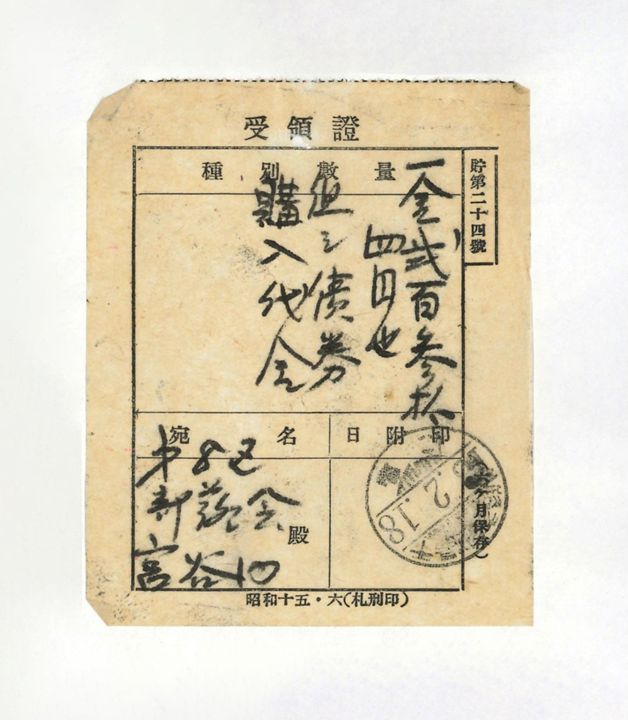 受領證
貯第二十四號
種別數量
一金弐百参拾
四円也
但シ債券
購入代金
宛名
日附印
第8区
殿
2.18
ヶ月保存
昭和十五・六(札刑印)